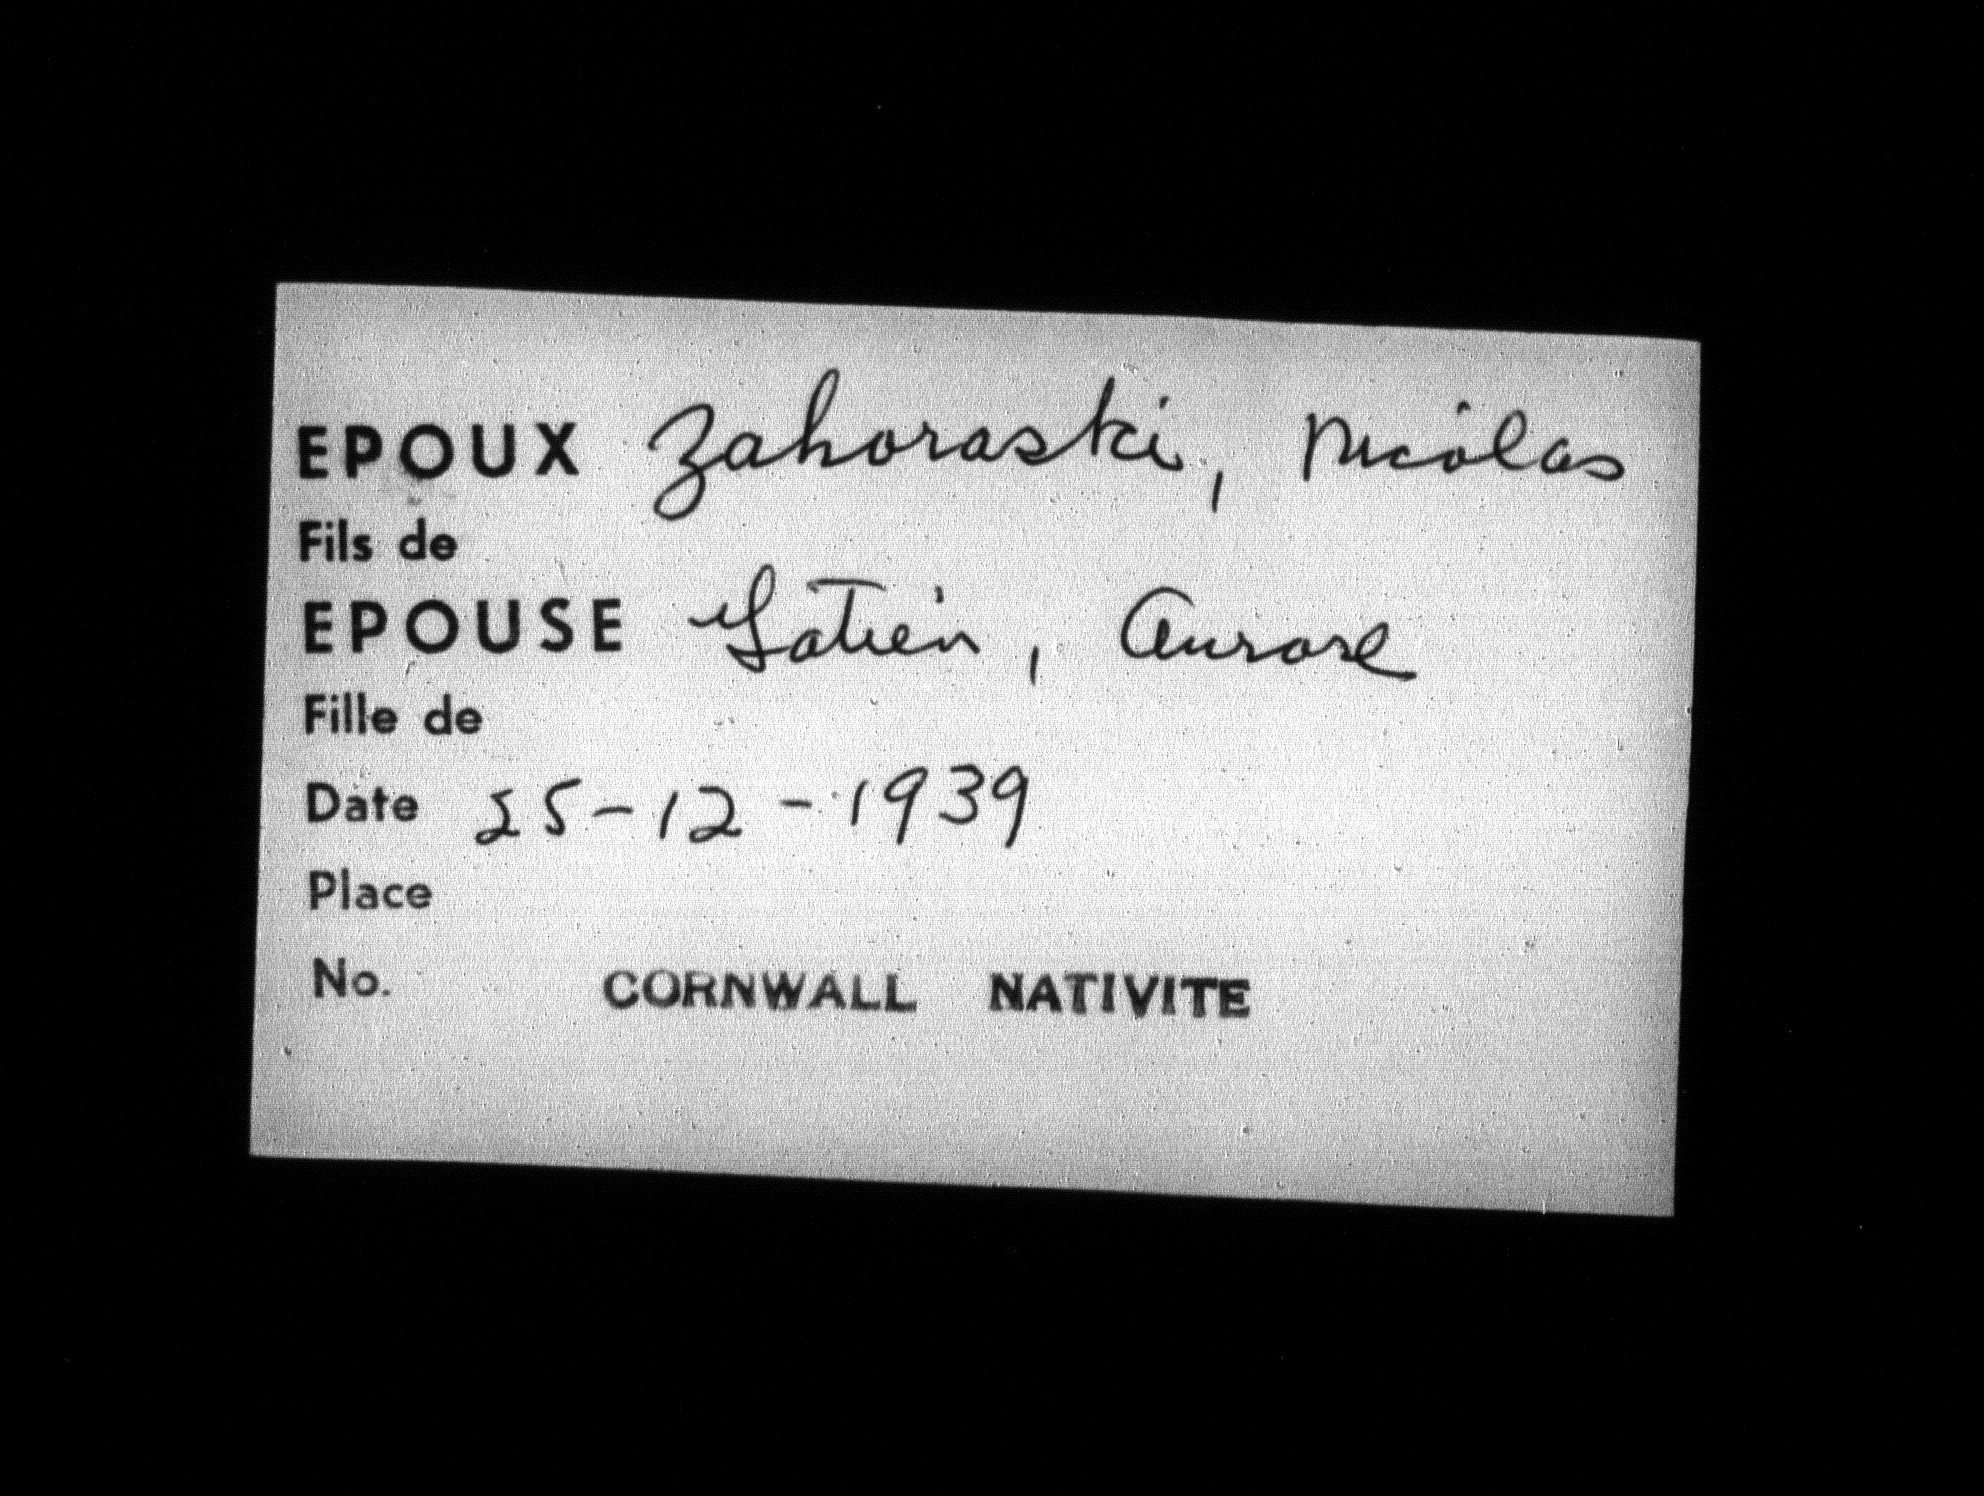 EPOUX Zahoraski, Nicolas
Fils de
EPOUSE Gatien, Aurore
Fille de
Date 25-12-1939
Place
No. CORNWALL NATIVITE